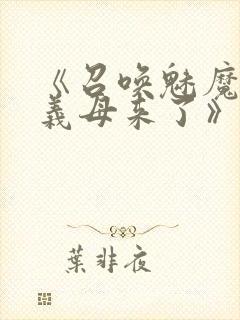 《召唤魅魔
義母来了》
葉非夜